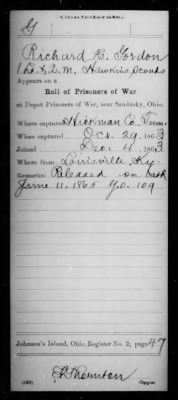 Confederate.
G
Richard H. Gordon
Hawkins Scouts
Appears on a
Roll of Prisoners of War
at Depot Prisoners of War, near Sandusky, Ohio.
Where captured Hickman Co. Tenn.
When captured Oct. 29, 1863
Joined Dec. 4, 1863
Where from Louisville, Ky.
Remarks: Released on oath
June 11, 1865 G.O. 109
Johnson's Island, Ohio, Register No. 2; page 47
Thornton
Copyist.